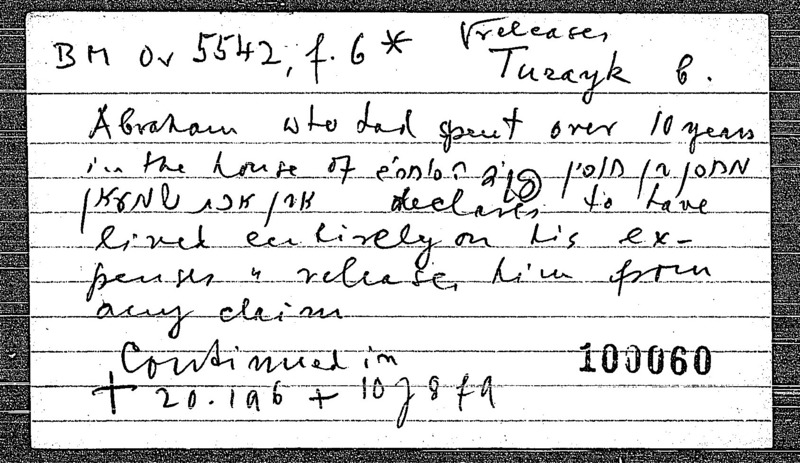 BM Or 5542, f. 6 * releases
Turayk b.
Abraham who had spent over 10 years
in the house of
declares to have
lived entirely on his ex-
penses & releases him from
any claim
Continued in
100060
+ 20.196 + 10 J 8 f 9